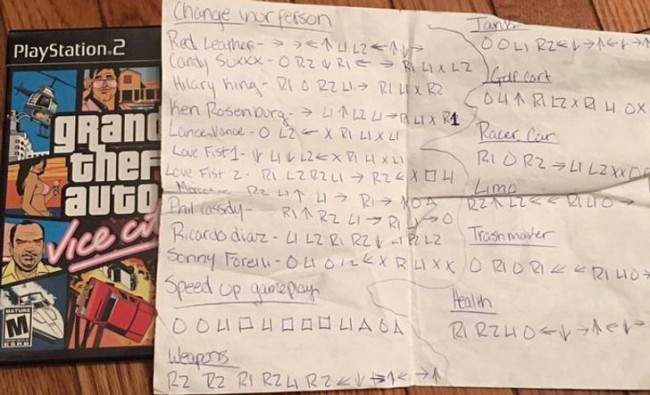 PlayStation 2
grand
theft
auto
Vice City
MATURE
M
ESRB
Change your person
Red Leather - → → ← ↑ L1 L2 ← ↑ ↓ →
Candy Suxxx - O R2 ↓ R1 ← → R1 L1 X L2
Hilary King - R1 O R2 L1 → R1 L1 X R2
Ken Rosenburg - → L1 ↑ L2 L1 → R1 L1 X R1
Lance Vance - O L2 ← X R1 L1 X L1
Love Fist 1 - ↓ L1 ↓ L2 ← X R1 L1 X L1
Love Fist 2 - R1 L2 R2 L1 → R2 ← X □ L1
R2 L1 ↑ L1 → R1 → X O △
Phil Cassidy - R1 ↑ R2 L1 → R1 L1 → O
Ricardo diaz - L1 L2 R1 R2 ↓ L1 R2 L2
Sonny Forelli - O L1 O L2 ← X R1 L1 X X
Speed up gameplay
O O L1 □ L1 □ □ □ L1 △ O △
Weapons
R2 R2 R1 R2 L1 R2 ← ↓ → ↑ ← ↓ → ↑
Tank
O O L1 R2 ← ↓ → ↑ ← ↓ → ↑
Golf cart
O L1 ↑ R1 L2 X R1 L1 O X
Racer Car
R1 O R2 → L1 L2 X X
Limo
R2 ↑ L2 ← ← R1 L1 O →
Trashmaster
O R1 O R1 ← ← R1 L1 O →
Health
R1 R2 L1 O ← ↓ → ↑ ← ↓ →